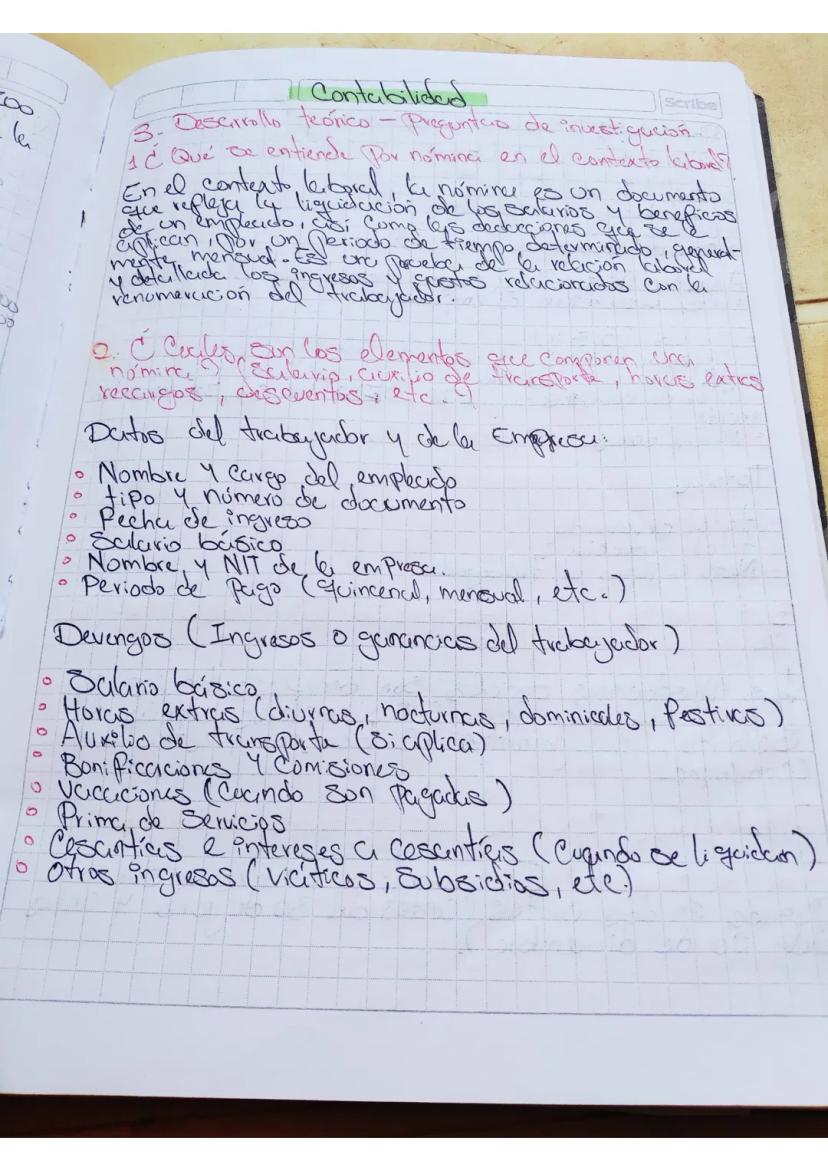 Contabilidad
scribe
3- Desarrollo teórico - Preguntas de investigación
1 ¿ Qué se entiende por nómina en el contexto laboral?
En el contexto laboral, la nómina es un documento
que refleja la liquidación de los salarios y beneficios
de un empleado, así como las deducciones que se le
aplican, por un periodo de tiempo determinado, general-
mente mensual. Es una prueba de la relación laboral
y detallada los ingresos y gastos relacionados con la
renumeración del trabajador.
2. ¿ Cuales son los elementos que componen una
nómina? (Salario, auxilio de transporte, horas extras
recargos, descuentos, etc.)
Datos del trabajador y de la Empresa:
Nombre y cargo del empleado
tipo y número de documento
Fecha de ingreso
Salario básico
Nombre y NIT de la empresa.
Periodo de pago (quincenal, mensual, etc.)
Devengos (Ingresos o ganancias del trabajador)
Salario básico
Horas extras (diurnas, nocturnas, dominicales, festivas)
Auxilio de transporte (Si aplica)
Bonificaciones y Comisiones
Vacaciones (Cuando son pagadas)
Prima de Servicios
Cesantías e intereses a cesantías (Cuando se liquidan)
Otros ingresos (Viáticos, Subsidios, etc.)